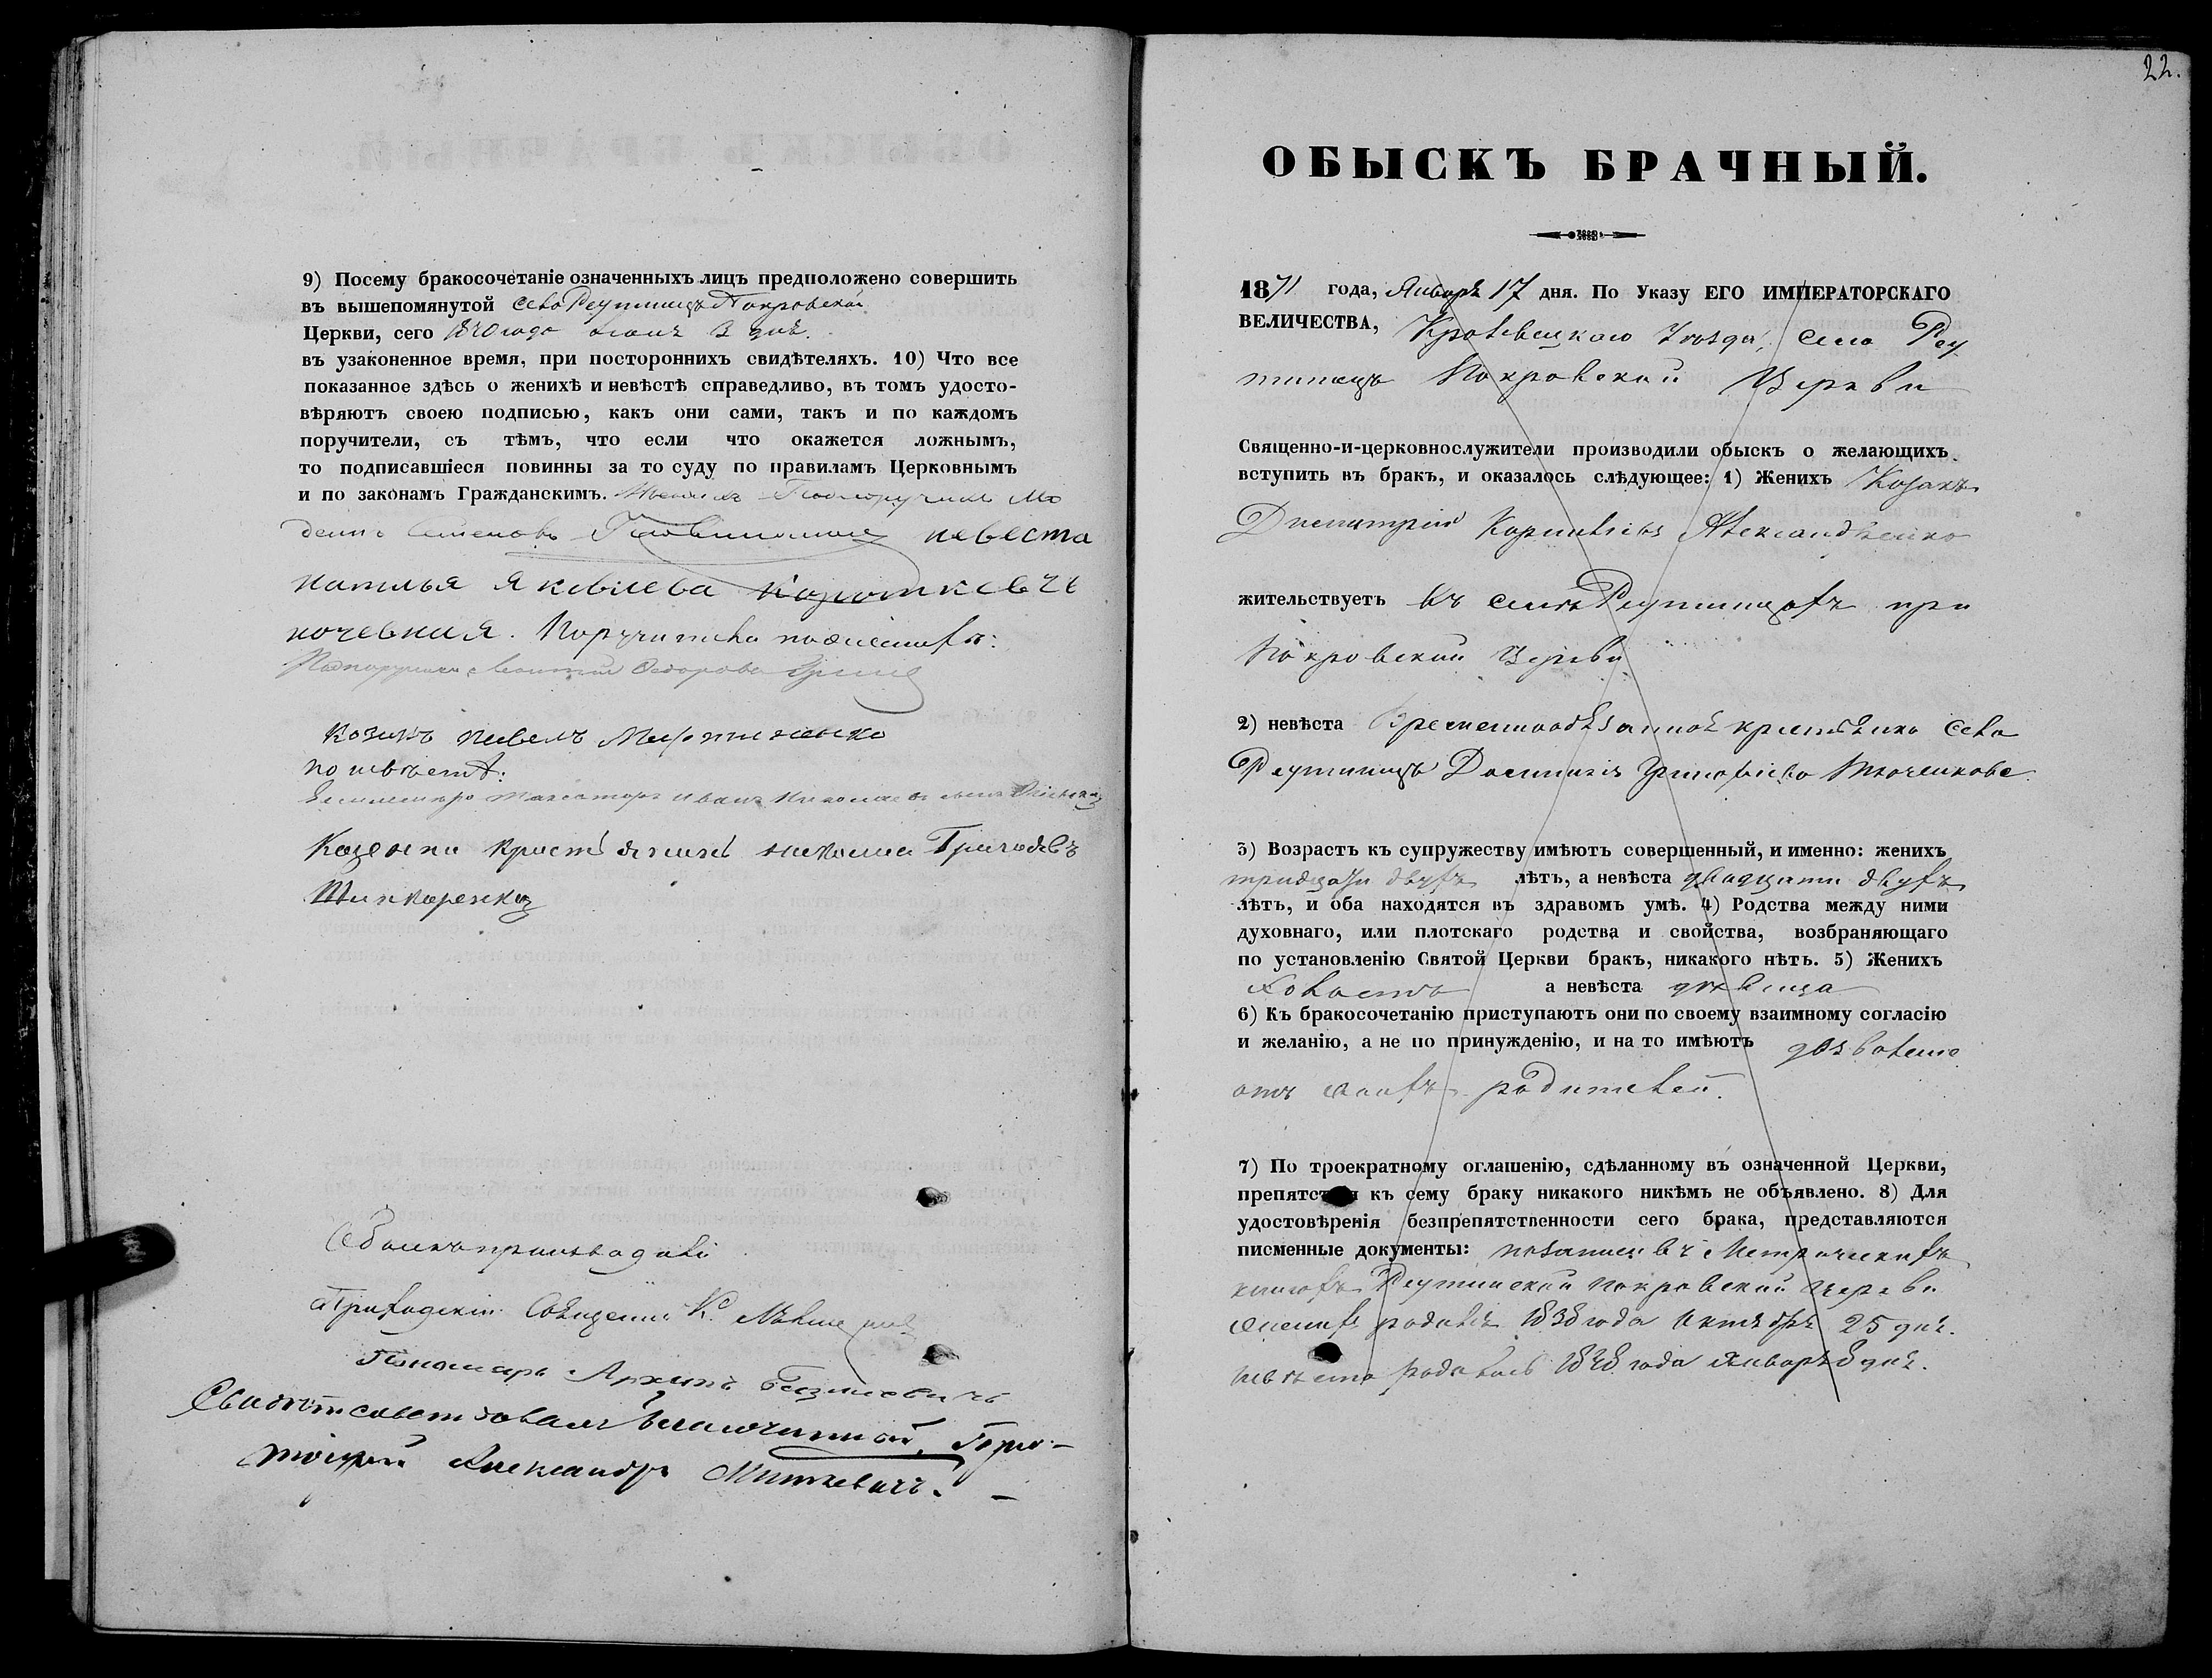 9) Посему бракосочетаніе означенныхъ лицъ предположено совершить
въ вышепомянутой села Реутинцъ Покровской
Церкви, сего 1870 года 3 дня.
въ узаконенное время, при постороннихъ свидѣтеляхъ. 10) Что все
показанное здѣсь о женихѣ и невѣстѣ справедливо, въ томъ удосто-
вѣряютъ своею подписью, какъ они сами, такъ и по каждомъ
поручители, съ тѣмъ, что если что окажется ложнымъ,
то подписавшіеся повинны за то суду по правиламъ Церковнымъ
и по законамъ Гражданскимъ. Женихъ Подпоручикъ Мо
дестъ Семеновъ невеста
наталья яковлева
Поручители по женихѣ:
Подпоручикъ Федоровъ
козакъ павелъ
по невѣстѣ:
Иванъ Николаевъ сынъ
николай Григорьевъ
Шинкаренко
Обыскъ производили
Приходскій Священникъ К.
Пономарь Архипъ
Свидѣтельствовалъ Благочинный, Прото-
іерей Александръ Миткевичъ.
22.
ОБЫСКЪ БРАЧНЫЙ.
1871 года, Января 17 дня. По Указу ЕГО ИМПЕРАТОРСКАГО
ВЕЛИЧЕСТВА, Кролевецкаго Уѣзда, села Реу
тинецъ Покровской Церкви
Священно-и-церковнослужители производили обыскъ о желающихъ
вступить въ бракъ, и оказалось слѣдующее: 1) Женихъ Козакъ
Димитрій Корниліевъ Александренко
жительствуетъ въ селѣ Реутинцахъ при
Покровской Церкви
2) невѣста Временнообязанная крестьянка села
Реутинцъ Домникія
3) Возрастъ къ супружеству имѣютъ совершенный, и именно: женихъ
тридцати двухъ лѣтъ, а невѣста двадцати двухъ
лѣтъ, и оба находятся въ здравомъ умѣ. 4) Родства между ними
духовнаго, или плотскаго родства и свойства, возбраняющаго
по установленію Святой Церкви бракъ, никакого нѣтъ. 5) Женихъ
холостъ а невѣста дѣвица
6) Къ бракосочетанію приступаютъ они по своему взаимному согласію
и желанію, а не по принужденію, и на то имѣютъ дозволеніе
отъ своихъ родителей.
7) По троекратному оглашенію, сдѣланному въ означенной Церкви,
препятствія къ сему браку никакого никѣмъ не объявлено. 8) Для
удостовѣренія безпрепятственности сего брака, представляются
писменные документы: по записи въ Метрическихъ
книгахъ Реутинской Покровской церкви
женихъ родился 1838 года Октября 25 дня.
невѣста родилась 1848 года Января 8 дня.